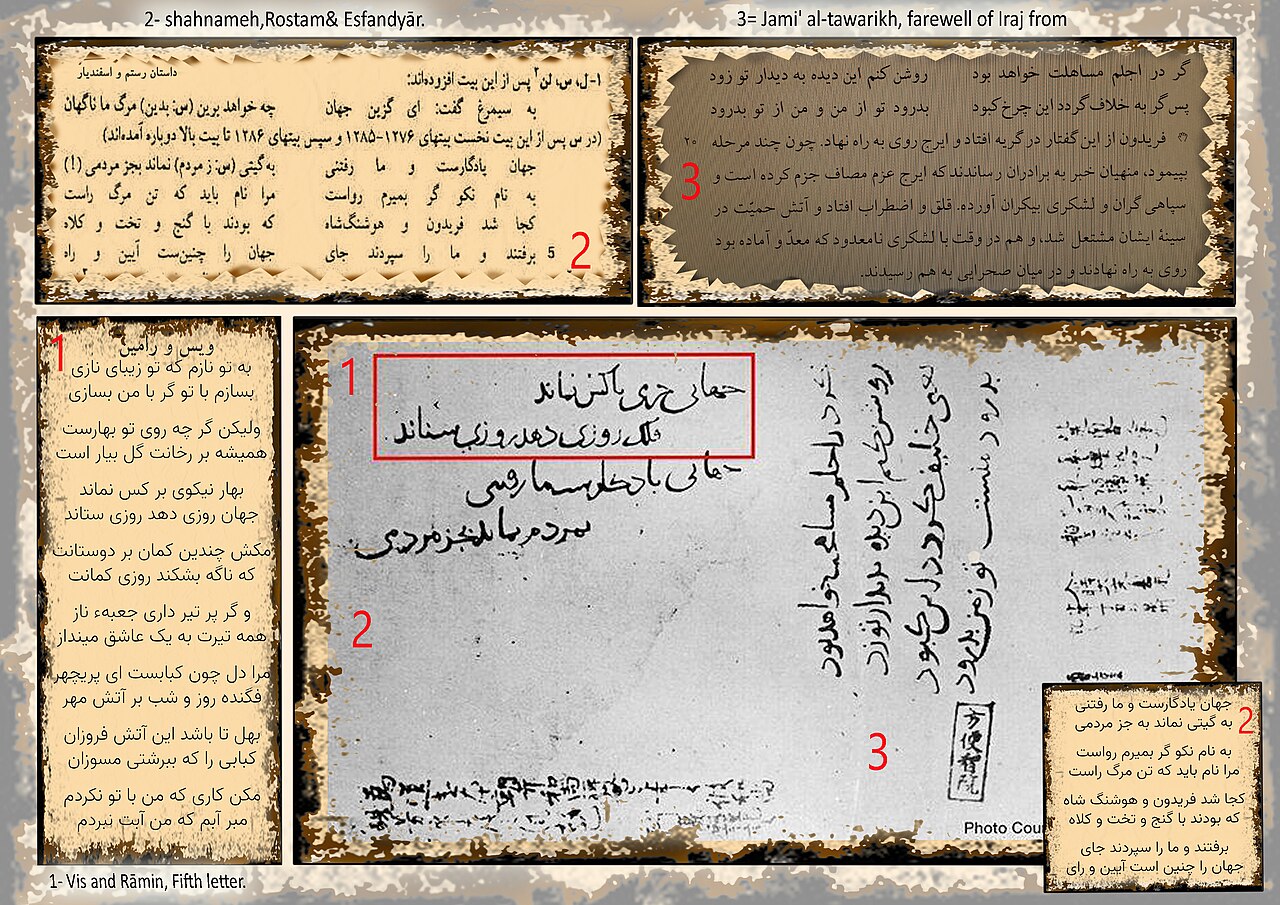 2- shahnameh,Rostam& Esfandyār.
3= Jami' al-tawarikh, farewell of Iraj from
داستان رستم و اسفندیار
۱-ل، س، لن۲ پس از این بیت افزوده‌اند:
به سیمرغ گفت: ای گزین جهان چه خواهد برین (س: بدین) مرگ ما ناگهان
(در س پس از این بیت نخست بیتهای ۱۲۷۶-۱۲۸۵ و سپس بیتهای ۱۲۸۶ تا بیت بالا دوباره آمده‌اند)
جهان یادگارست و ما رفتنی به گیتی (س: ز مردم) نماند بجز مردمی (!)
به نام نکو گر بمیرم رواست مرا نام باید که تن مرگ راست
کجا شد فریدون و هوشنگ‌شاه که بودند با گنج و تخت و کلاه
5 برفتند و ما را سپردند جای جهان را چنین‌ست آیین و راه
2
گر در اجلم مساهلت خواهد بود روشن کنم این دیده به دیدار تو زود
پس گر به خلاف گردد این چرخ کبود بدرود تو از من و من از تو بدرود
فریدون از این گفتار در گریه افتاد و ایرج روی به راه نهاد. چون چند مرحله ۲۰
بپیمود، منهیان خبر به برادران رساندند که ایرج عزم مصاف جزم کرده است و
سپاهی گران و لشکری بیکران آورده. قلق و اضطراب افتاد و آتش حمیّت در
سینهٔ ایشان مشتعل شد، و هم در وقت با لشکری نامعدود که معدّ و آماده بود
روی به راه نهادند و در میان صحرایی به هم رسیدند.
3
1
ویس و رامین
به تو نازم که تو زیبای نازی
بسازم با تو گر با من بسازی
ولیکن گر چه روی تو بهارست
همیشه بر رخانت گل بیار است
بهار نیکوی بر کس نماند
جهان روزی دهد روزی ستاند
مکش چندین کمان بر دوستانت
که ناگه بشکند روزی کمانت
و گر پر تیر داری جعبهء ناز
همه تیرت به یک عاشق مینداز
مرا دل چون کبابست ای پریچهر
فگنده روز و شب بر آتش مهر
بهل تا باشد این آتش فروزان
کبابی را که ببرشتی مسوزان
مکن کاری که من با تو نکردم
مبر آبم که من آبت نبردم
1- Vis and Rāmin, Fifth letter.
1
جهانی خرمی با کس نماند
فلک روزی دهد روزی ستاند
جهانی یادگارست ما رفتنی
بمردم نماند بجز مردمی
2
گر در اجلم مسامحت خواهد بود
روشن کنم این دیده بدیدار تو زود
کبود
بدرود تو از من بدرود
3
方便智院
Photo Cou
2
جهان یادگارست و ما رفتنی
به گیتی نماند به جز مردمی
به نام نکو گر بمیرم رواست
مرا نام باید که تن مرگ راست
کجا شد فریدون و هوشنگ شاه
که بودند با گنج و تخت و کلاه
برفتند و ما را سپردند جای
جهان را چنین است آیین و رای